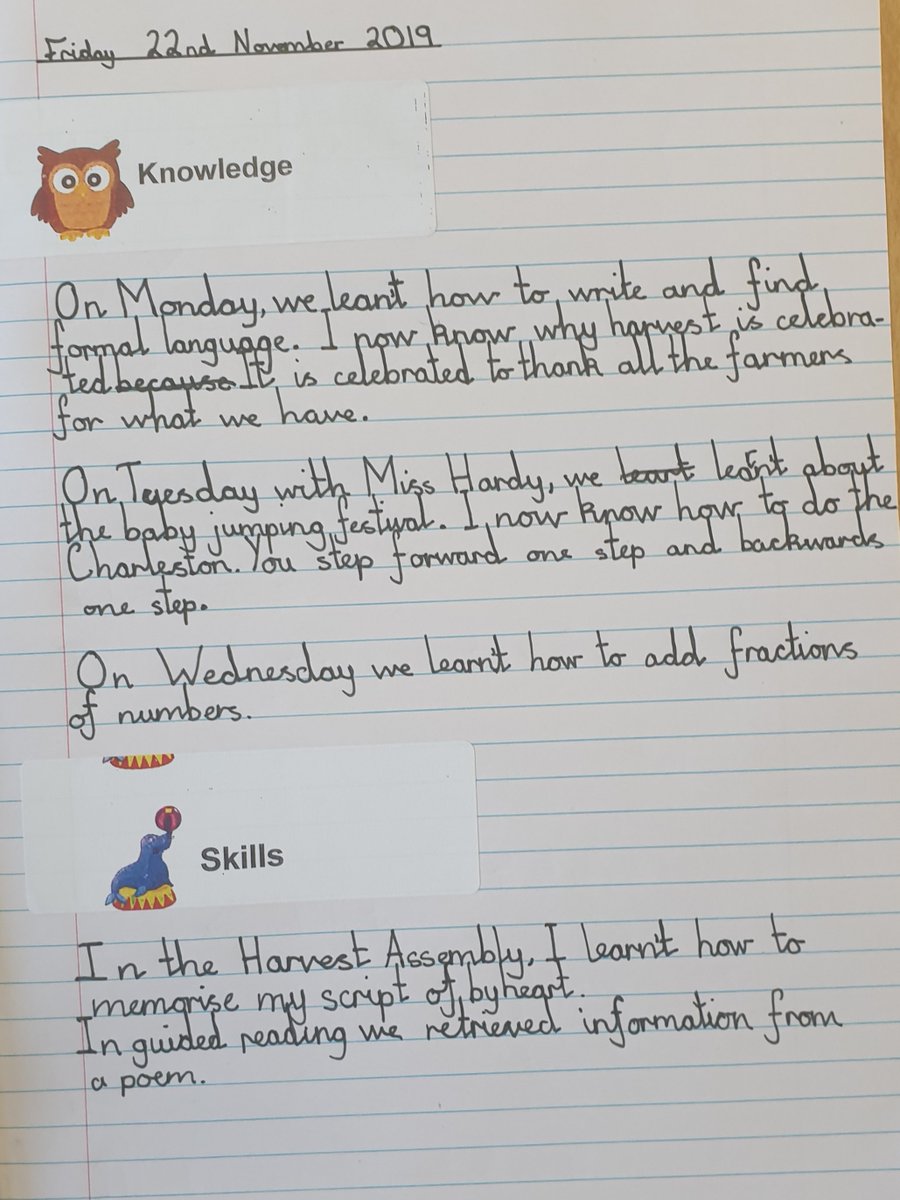 Friday 22nd November 2019
Knowledge
On Monday, we leant how to write and find
formal language. I now know why harvest is celebra-
ted because It is celebrated to thank all the farmers
for what we have.
On Tuesday with Miss Hardy, we leart learnt about
the baby jumping festival. I now know how to do the
Charleston. You step forward one step and backwards
one step.
On Wednesday we learnt how to add fractions
of numbers.
Skills
In the Harvest Assembly, I learnt how to
memorise my script of by heart.
In guided reading we retrieved information from
a poem.